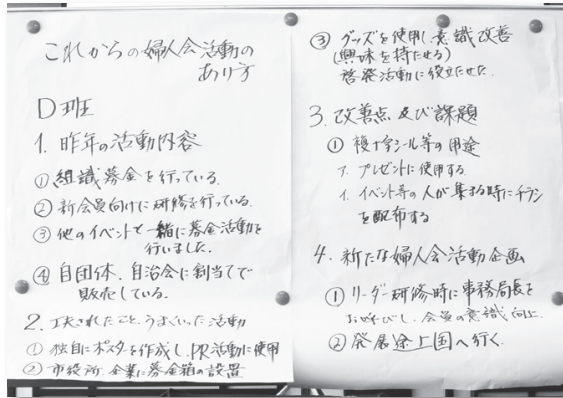 これからの婦人会活動の
あり方
D班
1. 昨年の活動内容
① 組織募金を行っている.
② 新会員向けに研修を行っている.
③ 他のイベントと一緒に募金活動を
行いました.
④ 自団体.自治会に割当てで
販売している.
2. 工夫されたこと、うまくいった活動
① 独自にポスターを作成し、PR活動に使用
② 市役所.企業に募金箱の設置
③ グッズを使用し意識改善
(興味を持たせる)
啓発活動に役立たせた.
3. 改善点及び課題
① 複十字シール等の用途
ア. プレゼントに使用する
イ. イベント等の人が集まる時にチラシ
を配布する
4. 新たな婦人会活動企画
① リーダー研修時に事務局長を
お呼びし、会員の意識向上.
② 発展途上国へ行く.